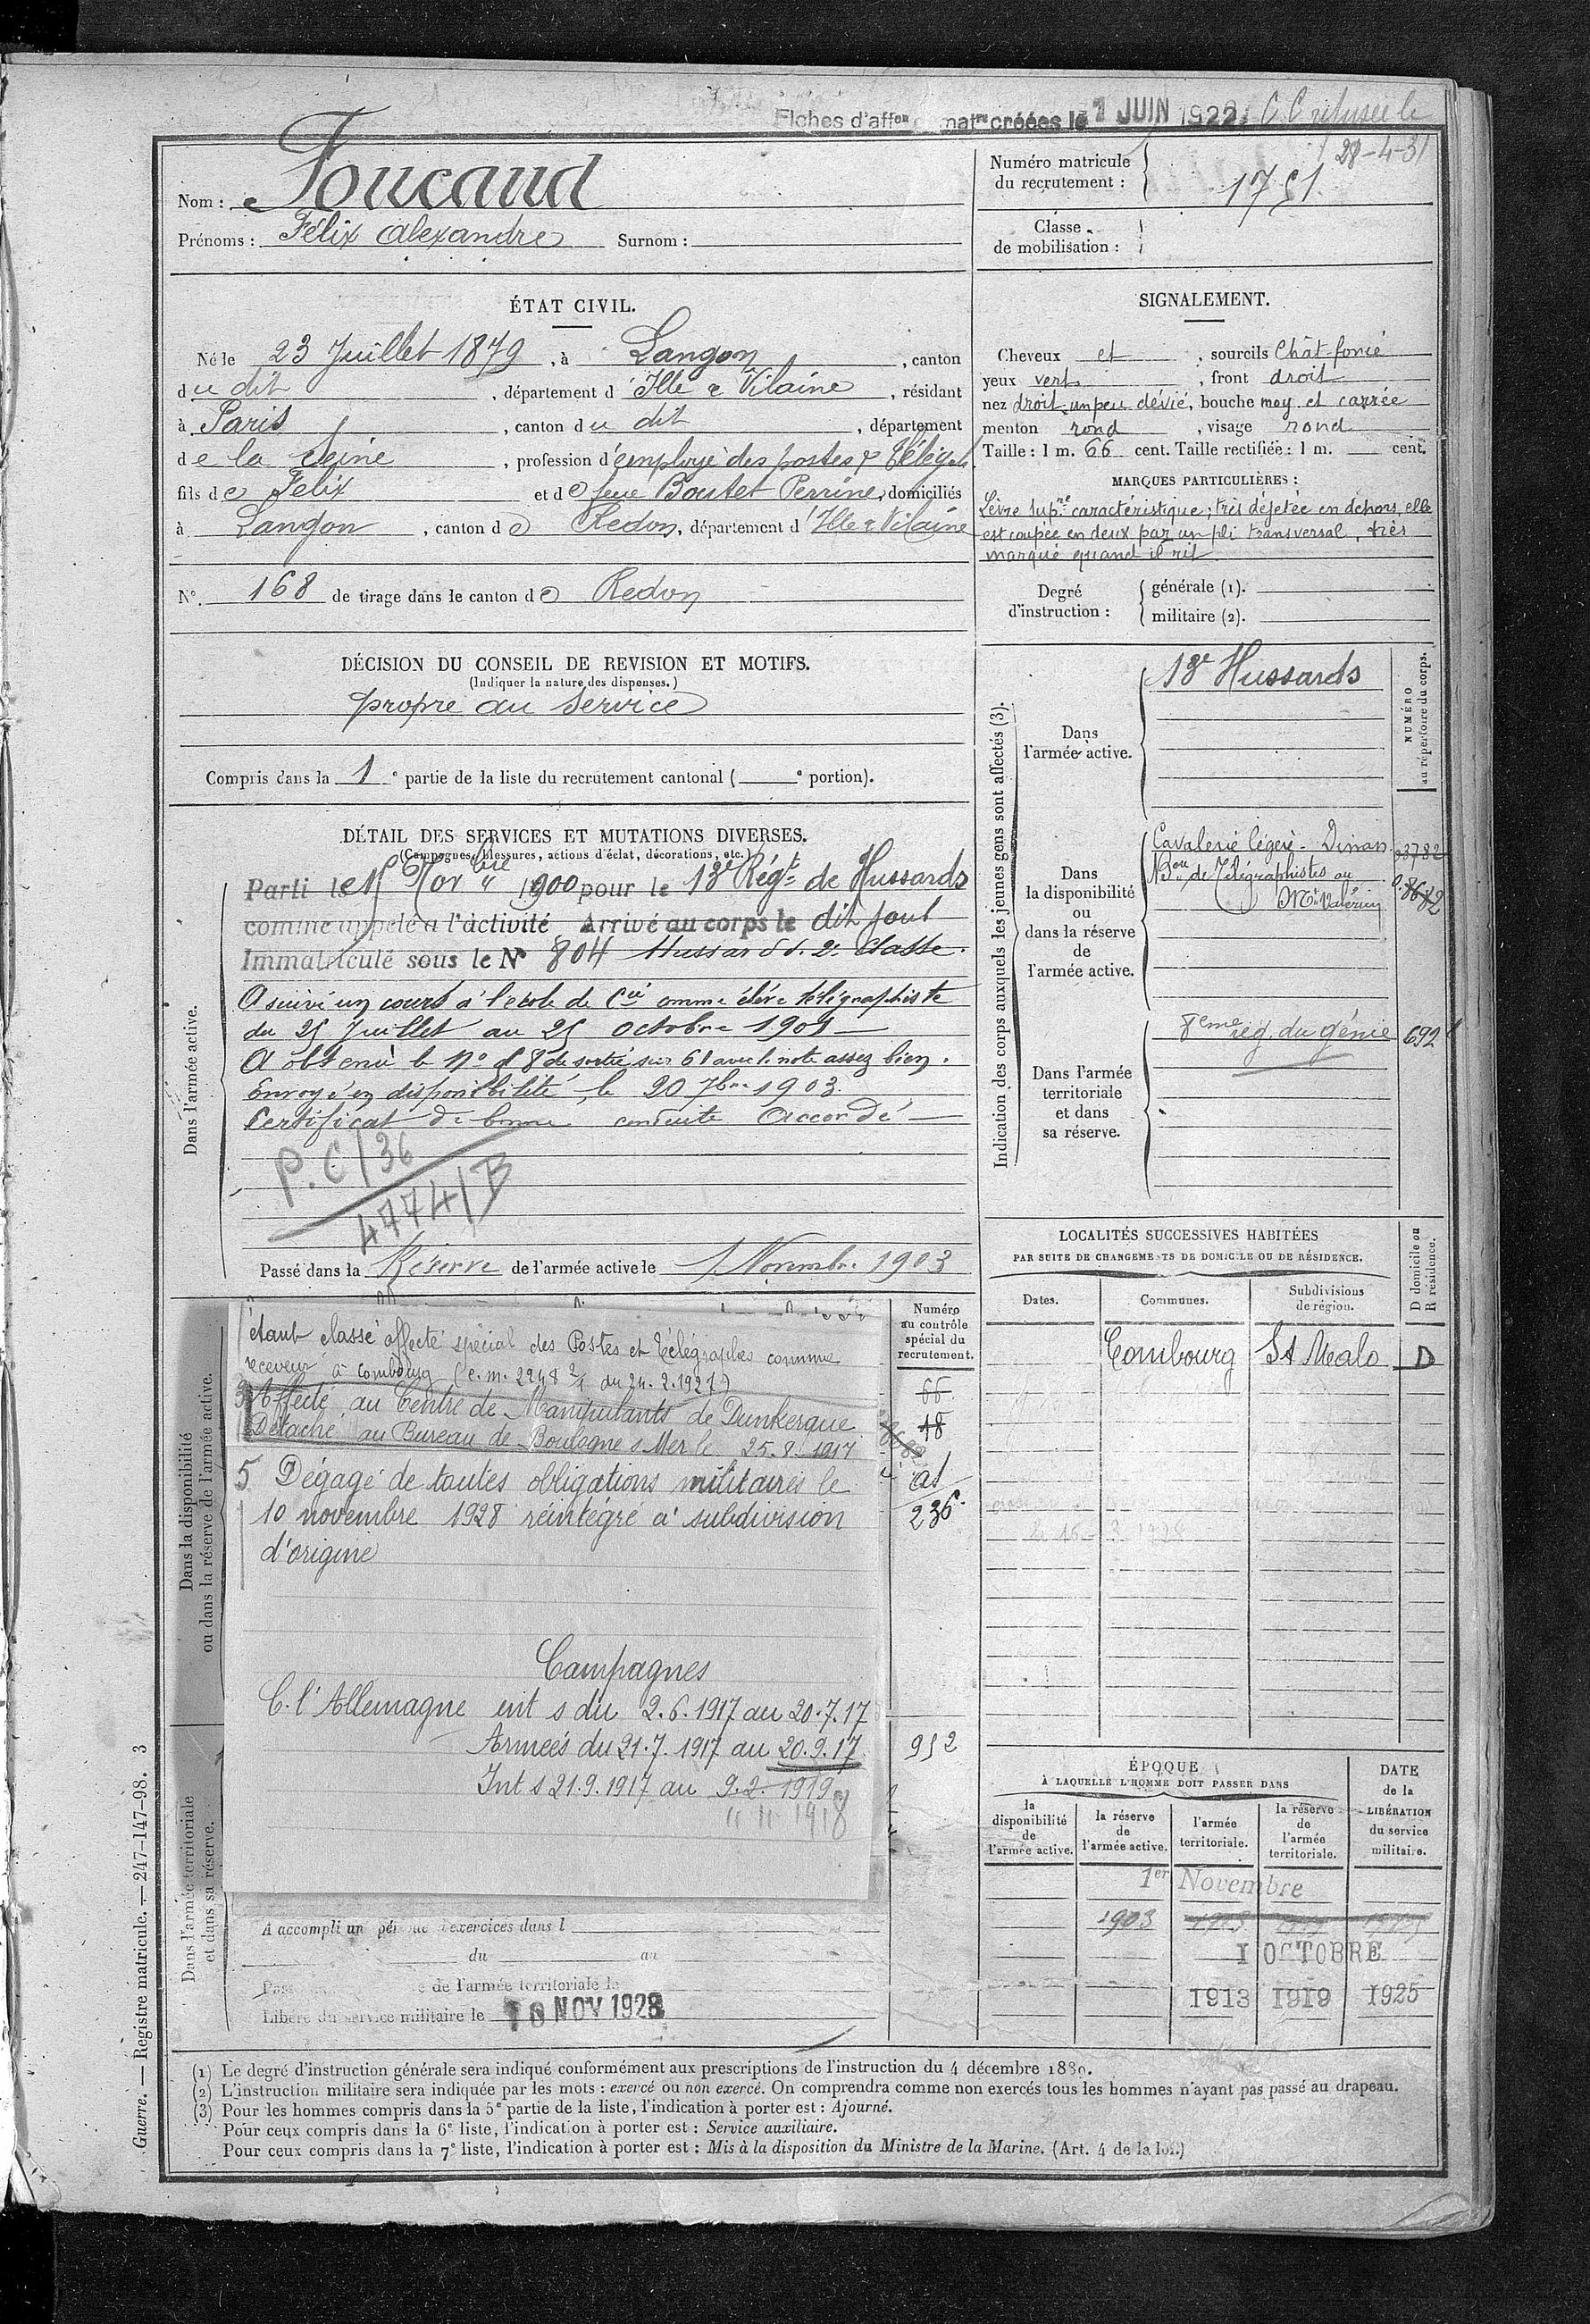 Fiches d'aff^on matre créées le 7 JUIN 1922. C C refusée le
28-4-31
Nom : Foucaud
Prénoms : Félix Alexandre Surnom :
Numéro matricule
du recrutement : 1751
Classe
de mobilisation :
ÉTAT CIVIL.
Né le 23 Juillet 1879, à Langon, canton
du dit, département d'Ille & Vilaine, résidant
à Paris, canton du dit, département
de la Seine, profession d'employé des postes & Télég
fils de Felix et de feue Boutet Perrine, domiciliés
à Langon, canton de Redon, département d'Ille & Vilaine
N° 168 de tirage dans le canton de Redon
SIGNALEMENT.
Cheveux et, sourcils Chât-foncé
yeux verts, front droit
nez droit un peu dévié, bouche moy et carrée
menton rond, visage rond
Taille : 1 m. 66 cent. Taille rectifiée : 1 m. cent.
MARQUES PARTICULIÈRES :
Lèvre supre caractéristique ; très déjetée en dehors, elle
est coupée en deux par un pli transversal, très
marqué quand il rit
Degré
d'instruction :
générale (1).
militaire (2).
DÉCISION DU CONSEIL DE REVISION ET MOTIFS.
(Indiquer la nature des dispenses.)
propre au service
Compris dans la 1e partie de la liste du recrutement cantonal ( e portion).
DÉTAIL DES SERVICES ET MUTATIONS DIVERSES.
(Campagnes, blessures, actions d'éclat, décorations, etc.)
Dans l'armée active.
Parti le 15 Novbre 1900 pour le 13e Régt de Hussards
comme appelé à l'activité Arrivé au corps le dit jour
Immatriculé sous le N° 804 Hussard d. 2e Classe.
A suivi un cours à l'école de Cie omme élève télégraphiste
du 25 Juillet au 25 octobre 1901
A obtenu le N° 8 de sortie sur 61 avec l. note assez bien.
Envoyé en disponibilité le 20 7bre 1903.
Certificat de bonne conduite Accordé
P.C/36
4774/B
Passé dans la Réserve de l'armée active le 1 Novembre 1903
Indication des corps auxquels les jeunes gens sont affectés (3).
NUMÉRO
au répertoire du corps.
Dans
l'armée active.
13e Hussards
Dans
la disponibilité
ou
dans la réserve
de
l'armée active.
Cavalerie légère - Dinan
Bon de Télégraphistes au
Mt Valérien
Dans l'armée
territoriale
et dans
sa réserve.
8eme rég. du génie 692
LOCALITÉS SUCCESSIVES HABITÉES
PAR SUITE DE CHANGEMENTS DE DOMICILE OU DE RÉSIDENCE.
D domicile ou
R résidence.
Dates. Communes. Subdivisions
de région.
Combourg St Malo D
Dans la disponibilité
ou dans la réserve de l'armée active.
Numéro
au contrôle
spécial du
recrutement.
66
18
at
236
952
étant classé affecté spécial des Postes et Télégraphes comme
receveur à Combourg (C.m. 2248 2/1 du 24.2.1927)
Affecté au Centre de Manipulants de Dunkerque
Détaché au Bureau de Boulogne s Mer le 25.8.1917
5 Dégagé de toutes obligations militaires le
10 novembre 1928 réintégré à subdivision
d'origine
Campagnes
C. l'Allemagne int s du 2.6.1917 au 20.7.17
Armées du 21.7.1917 au 20.9.17
Int s 21.9.1917 au 9.2.1919
" 11 1918
Dans l'armée territoriale
et dans sa réserve.
A accompli un exercices dans l
du au
de l'armée territoriale le
Libéré du service militaire le 10 NOV 1928
ÉPOQUE
À LAQUELLE L'HOMME DOIT PASSER DANS
DATE
de la
LIBÉRATION
du service
militaire.
la
disponibilité
de
l'armée active.
la réserve
de
l'armée active.
l'armée
territoriale.
la réserve
de
l'armée
territoriale.
1er Novembre
1903
1 OCTOBRE
1913 1919 1925
(1) Le degré d'instruction générale sera indiqué conformément aux prescriptions de l'instruction du 4 décembre 1889.
(2) L'instruction militaire sera indiquée par les mots : exercé ou non exercé. On comprendra comme non exercés tous les hommes n'ayant pas passé au drapeau.
(3) Pour les hommes compris dans la 5e partie de la liste, l'indication à porter est : Ajourné.
Pour ceux compris dans la 6e liste, l'indication à porter est : Service auxiliaire.
Pour ceux compris dans la 7e liste, l'indication à porter est : Mis à la disposition du Ministre de la Marine. (Art. 4 de la loi.)
Guerre. — Registre matricule. — 247-147-98. 3